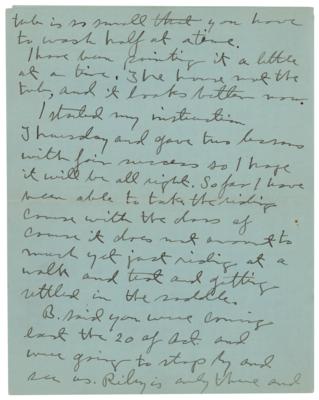 tub is so small that you have
to wash half at a time.
I have been painting it a little
at a time. The house not the
tub, and it looks better now.
I started my instruction
Thursday and gave two lessons
with fair success so I hope
it will be all right. So far I have
been able to take the riding
course with the class of
course it does not amount to
much yet just riding at a
walk and trot and getting
settled in the saddle.
B. said you were coming
east the 20 of Oct. and
were going to stop by and
see us. Riley is only there and